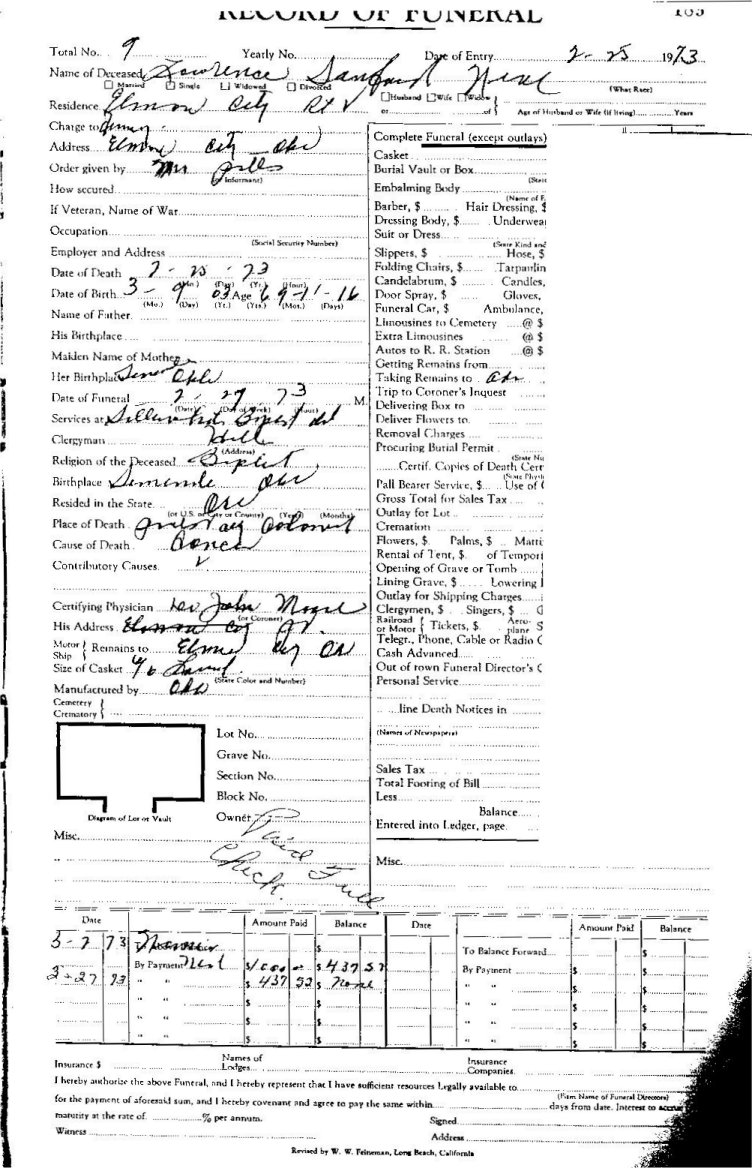 RECORD OF FUNERAL
Total No. 9 Yearly No. Date of Entry 2 - 25 1973
Name of Deceased Lawrence Sanford Neal
Married Single Widowed Divorced Husband Wife Widow (What Race)
Residence Elmore City Rt
or of Age of Husband or Wife (if living) Years
Charge to
Address Elmore City Okl
Order given by Mrs
(or Informant)
How secured
If Veteran, Name of War
Occupation
(Social Security Number)
Employer and Address
Date of Death 2 - 25 - 73
(Mo.) (Day) (Yr.) (Hour)
Date of Birth 3 - 9 03 Age 69 - 11 - 16
(Mo.) (Day) (Yr.) (Yrs.) (Mos.) (Days)
Name of Father
His Birthplace
Maiden Name of Mother
Her Birthplace
Date of Funeral 2 - 27 73 M
(Date) (Day of Week) (Hour)
Services at
Clergyman Hill
(Address)
Religion of the Deceased
Birthplace
Resided in the State
(or U.S. or City or County) (Years) (Months)
Place of Death
Cause of Death
Contributory Causes
Certifying Physician John Moore
(or Coroner)
His Address Elmore City
Motor Ship } Remains to Elmore City
Size of Casket 6/6
(State Color and Number)
Manufactured by
Cemetery
Crematory
Lot No.
Grave No.
Section No.
Block No.
Diagram of Lot or Vault
Owner
Misc.
Paid Full
Check.
Complete Funeral (except outlays)
Casket
Burial Vault or Box
(State
Embalming Body
(Name of E
Barber, $ Hair Dressing, $
Dressing Body, $ Underwear
Suit or Dress
(State Kind and
Slippers, $ Hose, $
Folding Chairs, $ Tarpaulin
Candelabrum, $ Candles,
Door Spray, $ Gloves,
Funeral Car, $ Ambulance,
Limousines to Cemetery @ $
Extra Limousines @ $
Autos to R. R. Station @ $
Getting Remains from
Taking Remains to
Trip to Coroner's Inquest
Delivering Box to
Deliver Flowers to
Removal Charges
Procuring Burial Permit
(State Nu
Certif. Copies of Death Cert
(State Physi
Pall Bearer Service, $ Use of
Gross Total for Sales Tax
Outlay for Lot
Cremation
Flowers, $ Palms, $ Matti
Rental of Tent, $ of Tempori
Opening of Grave or Tomb
Lining Grave, $ Lowering
Outlay for Shipping Charges
Clergymen, $ Singers, $
Railroad or Motor { Tickets, $ Aero-plane $
Telegr., Phone, Cable or Radio
Cash Advanced
Out of town Funeral Director's
Personal Service
line Death Notices in
(Names of Newspapers)
Sales Tax
Total Footing of Bill
Less
Balance
Entered into Ledger, page
Misc.
Date Amount Paid Balance Date Amount Paid Balance
3 - 7 73 $ To Balance Forward $
By Payment $ $437 57 By Payment $ $
3 - 27 73 " " $ 437 $ None " " $ $
" " $ $ " " $ $
" " $ $ " " $ $
" " $ $ " " $ $
Insurance $ Names of Lodges Insurance Companies
I hereby authorize the above Funeral, and I hereby represent that I have sufficient resources Legally available to
(Firm Name of Funeral Directors)
for the payment of aforesaid sum, and I hereby covenant and agree to pay the same within days from date. Interest to accrue
maturity at the rate of % per annum. Signed
Witness Address
Revised by W. W. Feineman, Long Beach, California